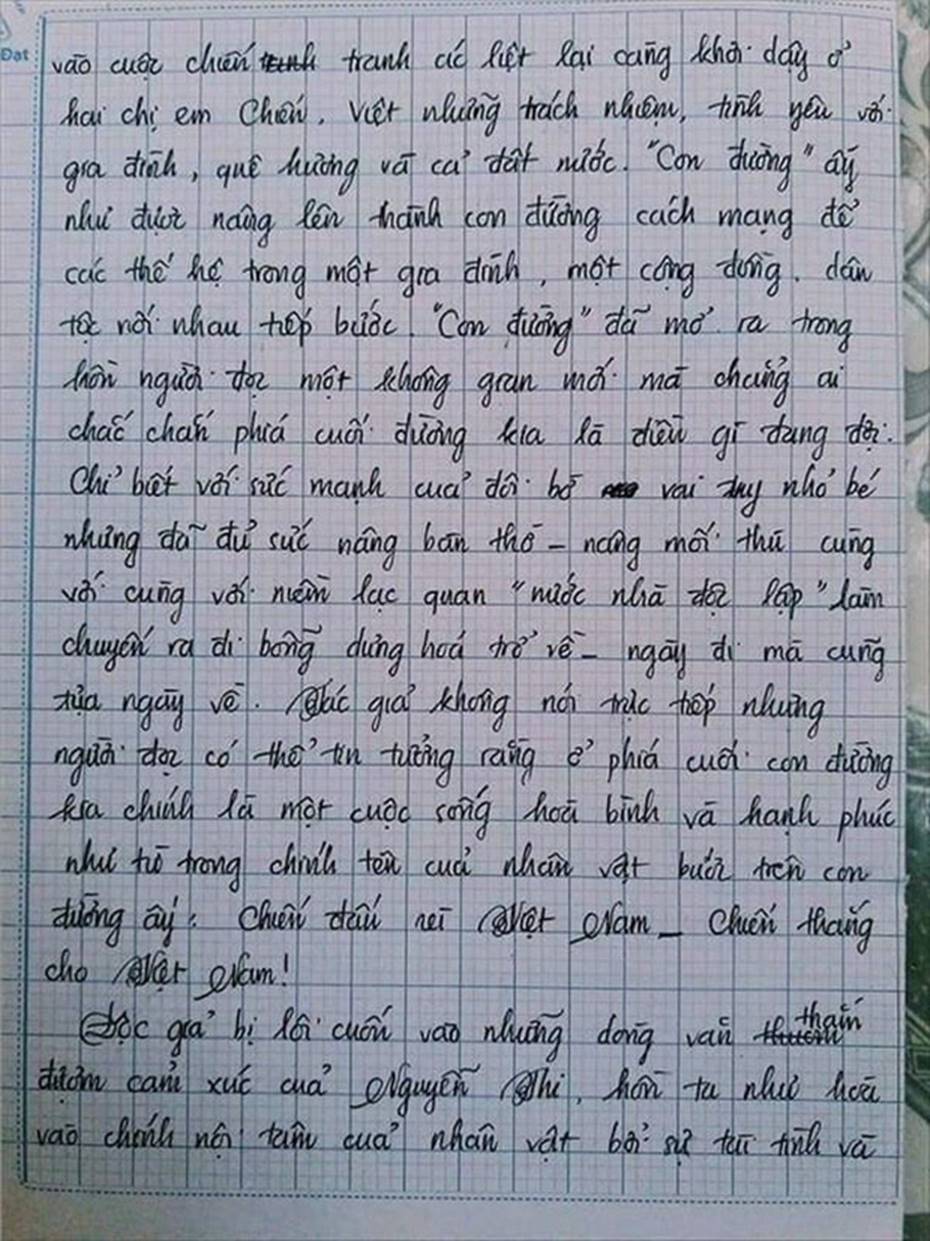 Đạt
vào cuộc chiến tranh tranh ác liệt lại càng khơi dậy ở
hai chị em Chiến, Việt những trách nhiệm, tình yêu với
gia đình, quê hương và cả đất nước. "Con đường" ấy
như được nâng lên thành con đường cách mạng để
các thế hệ trong một gia đình, một cộng đồng, dân
tộc nối nhau tiếp bước. "Con đường" đã mở ra trong
lòng người đọc một không gian mới mà chẳng ai
chắc chắn phía cuối đường kia là điều gì đang đợi.
Chỉ biết với sức mạnh của đôi bờ vai tuy nhỏ bé
nhưng đã đủ sức nâng bàn thờ - nâng mối thù cùng
với cùng với niềm lạc quan "nước nhà độc lập" làm
chuyến ra đi bỗng dưng hoá trở về - ngày đi mà cũng
tựa ngày về. Tác giả không nói trực tiếp nhưng
người đọc có thể tin tưởng rằng ở phía cuối con đường
kia chính là một cuộc sống hoà bình và hạnh phúc
như từ trong chính tên của nhân vật bước trên con
đường ấy: Chiến đấu vì Việt Nam - Chiến thắng
cho Việt Nam!
Độc giả bị lôi cuốn vào những dòng văn thấm
đượm cảm xúc của Nguyễn Thi, hồn ta như hoà
vào chính nội tâm của nhân vật bởi sự tài tình và